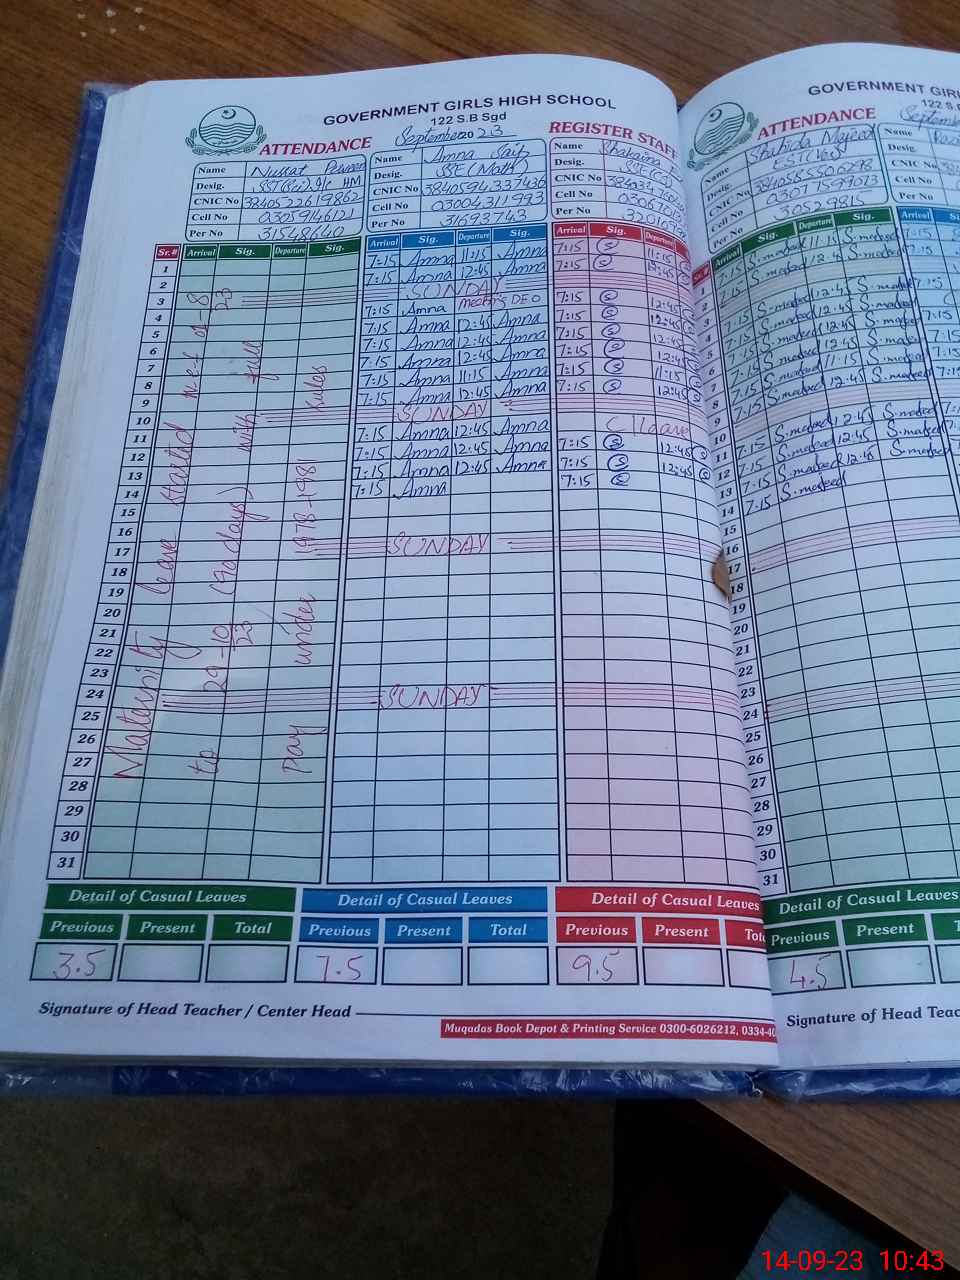 GOVERNMENT GIRLS HIGH SCHOOL
122 S.B Sgd
ATTENDANCE September 2023 REGISTER STAFF
Name Nussat Parveen
Desig. SST(Sci) I/c HM
CNIC No
Cell No 03059146121
Per No 31548640
Name Amna Saif
Desig. SSE (Math)
CNIC No 3840594337436
Cell No 03004311993
Per No 31693743
Name
Desig.
CNIC No
Cell No
Per No
Sr.# Arrival Sig. Departure Sig. Arrival Sig. Departure Sig. Arrival Sig. Departure
1 7:15 Amna 11:15 Amna 7:15 S 11:15
2 7:15 Amna 12:45 Amna 7:15 S 12:45
3 SUNDAY
4 7:15 Amna DEO 7:15 S 12:45
5 7:15 Amna 12:45 Amna 7:15 S 12:45
6 7:15 Amna 12:45 Amna 7:15 S 12:45
7 7:15 Amna 12:45 Amna 7:15 S 12:45
8 7:15 Amna 11:15 Amna 7:15 S 11:15
9 7:15 Amna 12:45 Amna 7:15 S 12:45
10 SUNDAY
11 7:15 Amna 12:45 Amna C/leave
12 7:15 Amna 12:45 Amna 7:15 S 12:45
13 7:15 Amna 12:45 Amna 7:15 S 12:45
14 7:15 Amna 7:15 S
15
16
17 SUNDAY
18
19
20
21
22
23
24 SUNDAY
25
26
27
28
29
30
31
Maternity leave started w.e.f 01-8/23
to 29-10/23 (90 days) with full
pay under 1978-1981 rules
Detail of Casual Leaves Detail of Casual Leaves Detail of Casual Leaves
Previous Present Total Previous Present Total Previous Present
3.5 7.5 9.5
Signature of Head Teacher / Center Head
Muqadas Book Depot & Printing Service 0300-6026212,
GOVERNMENT GIRLS
122 S.
ATTENDANCE September
Name Shahida Majeed
Desig. EST
CNIC No 3840565550698
Cell No
Per No 30529815
Name
Desig.
CNIC No
Cell No
Per No
Sr.# Arrival Sig. Departure Sig. Arrival
1 7:15 S.majeed 11:15 S.majeed
2 7:15 S.majeed 12:45 S.majeed
3
4 7:15 S.majeed 12:45 S.majeed
5 7:15 S.majeed 12:45 S.majeed
6 7:15 S.majeed 12:45 S.majeed
7 7:15 S.majeed 12:45 S.majeed
8 7:15 S.majeed 11:15 S.majeed
9 7:15 S.majeed 12:45 S.majeed
10
11 7:15 S.majeed 12:45 S.majeed
12 7:15 S.majeed 12:45 S.majeed
13 7:15 S.majeed 12:45 S.majeed
14 7:15 S.majeed
15
16
17
18
19
20
21
22
23
24
25
26
27
28
29
30
31
Detail of Casual Leaves
Previous Present
4.5
Signature of Head
14-09-23 10:43